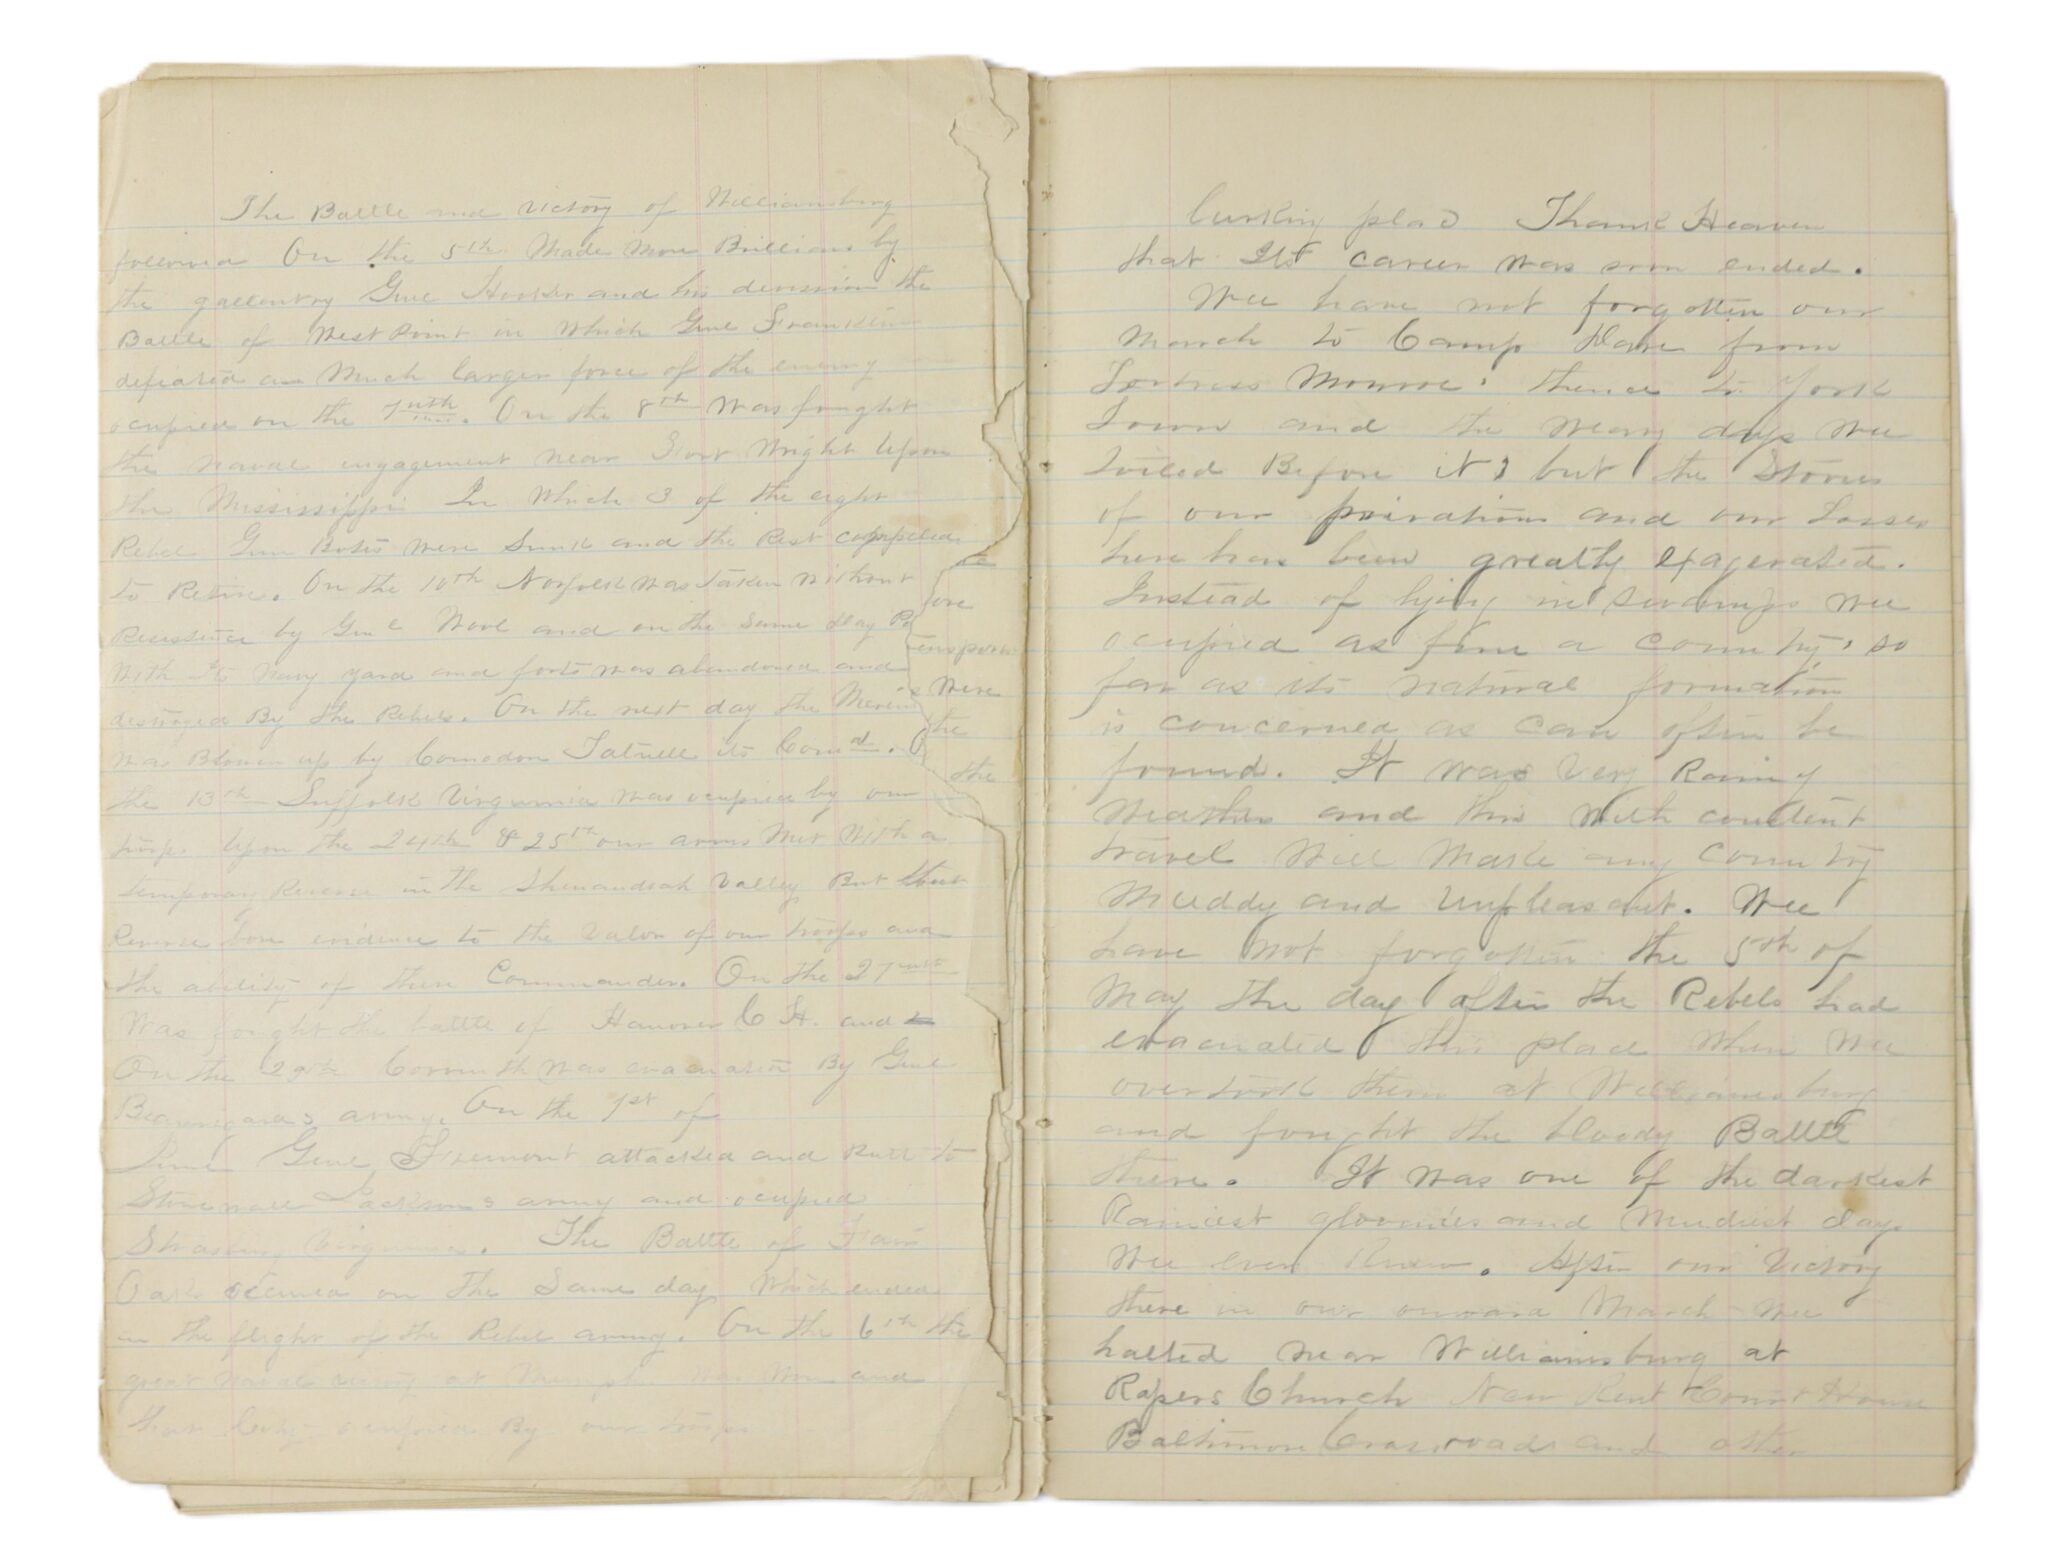 The Battle and Victory of Williamsburg
followed On the 5th Made More Brilliant by
the gallantry Genl Hooker and his devision the
Battle of West Point in Which Genl Franklin
defeated a Much larger force of the enemy
ocupied on the 7nth. On the 8th Was fought
the naval engagement near Fort Wright Upon
the Mississippi In Which 3 of the eight
Rebel Gun Boats were Sunk and the Rest
to Retire. On the 10th Norfolk Was taken Without
Resistance by Genl Wool and on the Same day
With its Navy yard and forts was abandoned and
destroyed By the Rebels. On the next day the
Was Blown up by Comodore Tatnell its Comd.
the 13th Suffolk Virginia Was ocupied by our
troops Upon the 24th & 25th our arms Met With a
temporary Reverse in the Shenandoah Valley But
Reverse bore evidence to the Valor of our troops and
the ability of there Commander. On the 27nth
Was fought the battle of Hanover C H. and
On the 29th Corrinth Was evacuated By Genl
Beauregards army. On the 1st of
June Genl Fremont attacked and
Stonewall Jacksons army and ocupied
Strasburg Virginia. The Battle of Fair
Oaks on the Same day Which ended
in the flight of the Rebel army. On the 6th the
great naval at Memphis Was Won and
that City ocupied By our troops
ore
ensport
Were
the
the
lurking place Thank Heaven
that Its career was soon ended.
Wee have not forgotten our
March to Camp from
Fortress Monroe: thence to York
Town and the Weary days Wee
toiled Before it; but the Stories
of our privations and our Losses
here has been greatly exagerated.
Instead of lying in Swamps Wee
ocupied as fine a country, so
far as its natural formation
is concerned as can often be
found. It was Very Rainy
Weather and this With
travel Will Make any Country
Muddy and Unpleasant. Wee
have not forgotten the 5th of
May the day after the Rebels had
evacuated this place When Wee
overtook them at Williamsburg
and fought the bloody Battle
there. It Was one of the darkest
Rainiest gloomies and Mudiest days
Wee ever Knew. After our Victory
there in our onward March Wee
halted near Williamsburg at
Ropers Church New Kent Court House
Baltimore Crossroads and other